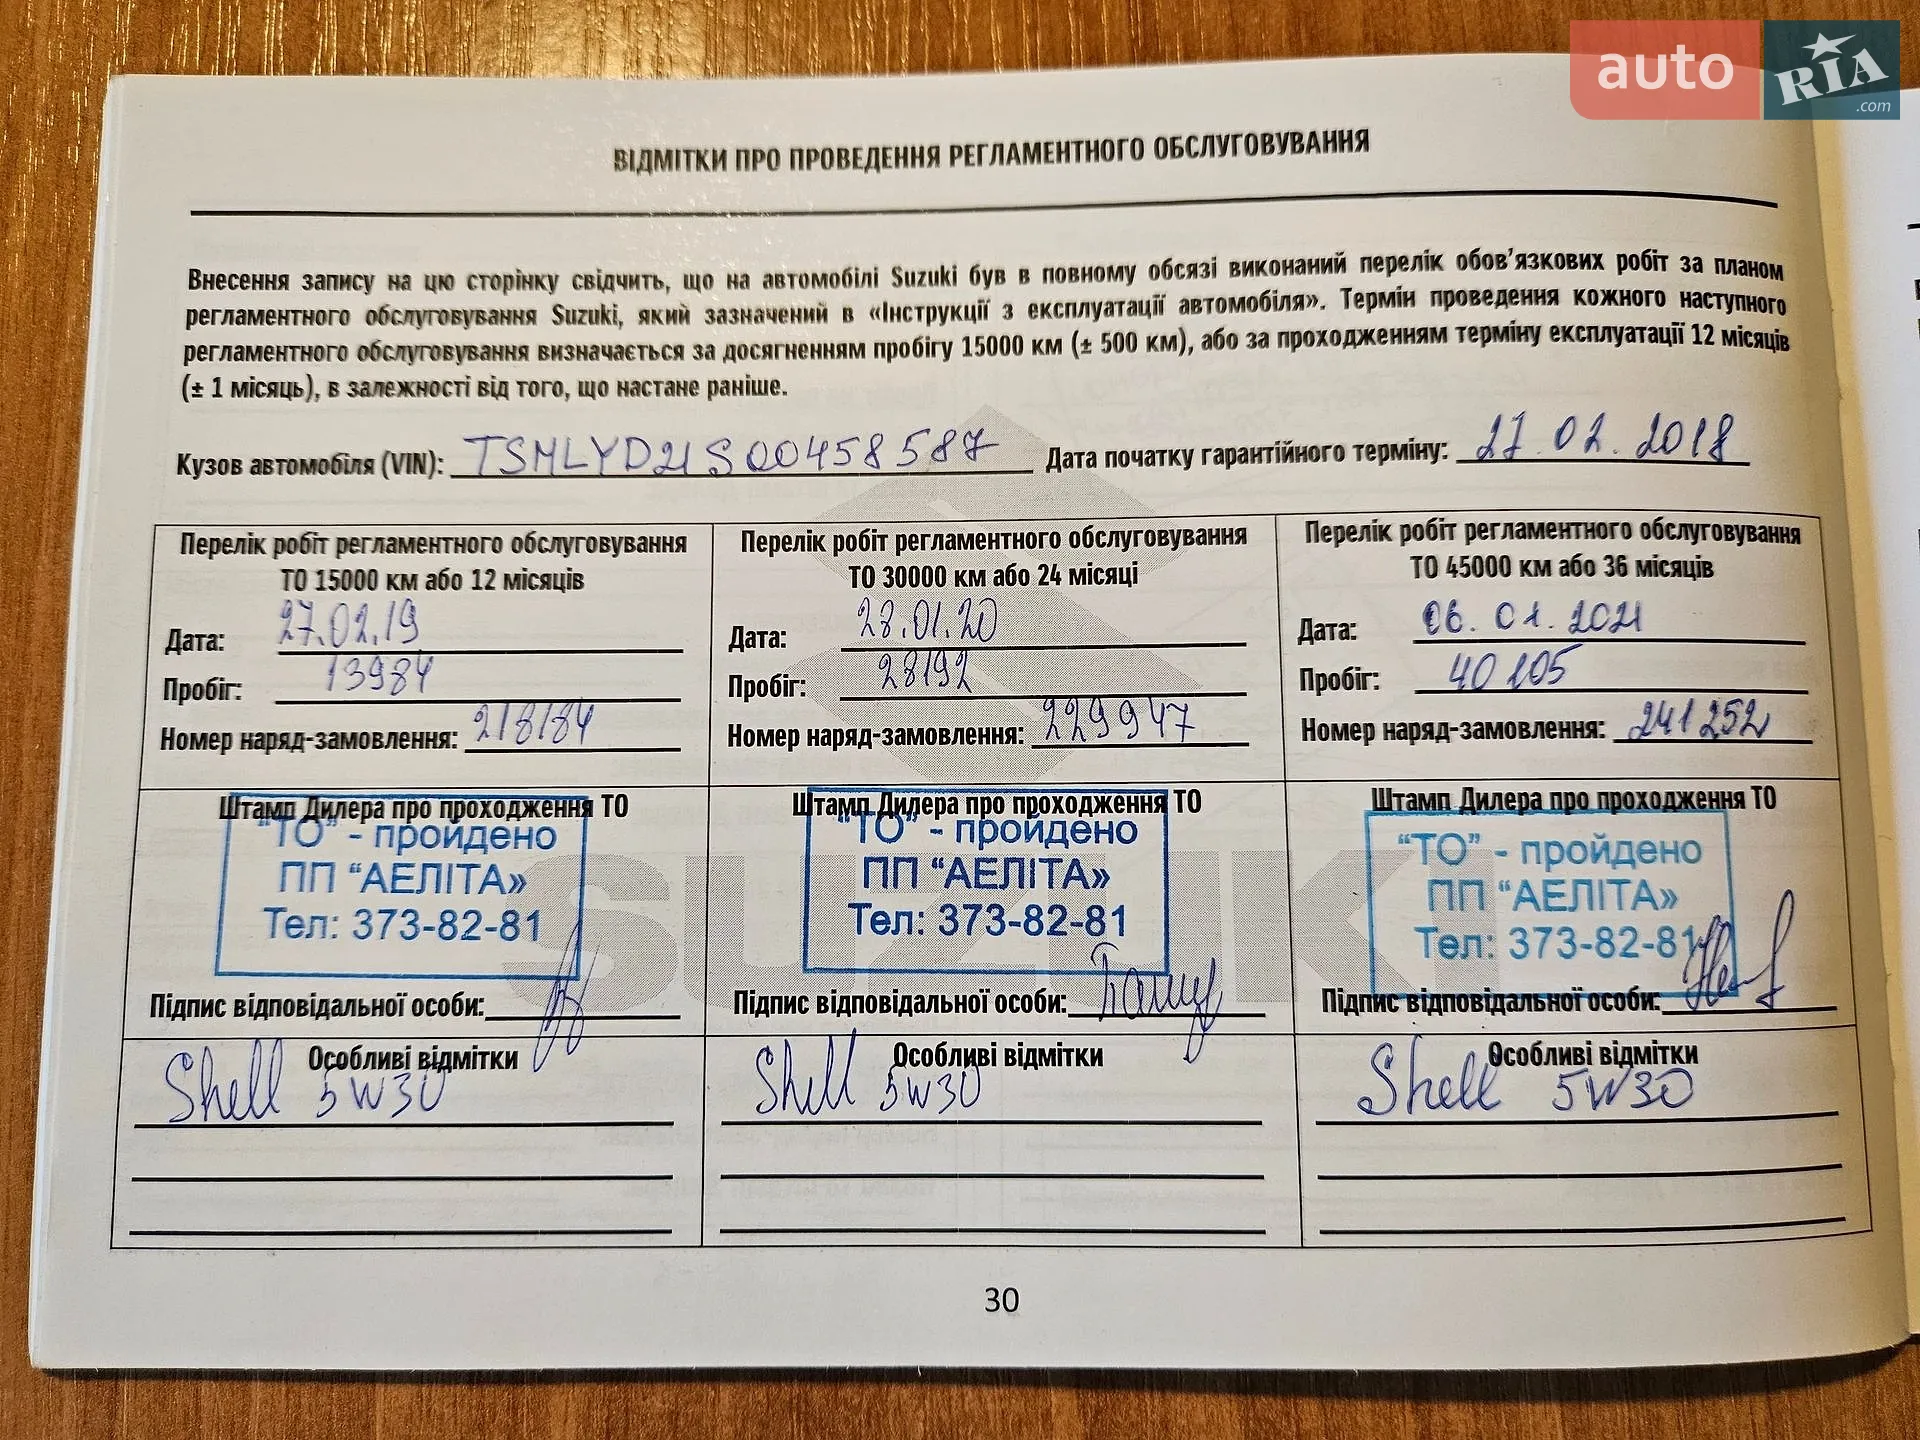 auto RIA .com
ВІДМІТКИ ПРО ПРОВЕДЕННЯ РЕГЛАМЕНТНОГО ОБСЛУГОВУВАННЯ
Внесення запису на цю сторінку свідчить, що на автомобілі Suzuki був в повному обсязі виконаний перелік обов'язкових робіт за планом
регламентного обслуговування Suzuki, який зазначений в «Інструкції з експлуатації автомобіля». Термін проведення кожного наступного
регламентного обслуговування визначається за досягненням пробігу 15000 км (± 500 км), або за проходженням терміну експлуатації 12 місяців
(± 1 місяць), в залежності від того, що настане раніше.
Кузов автомобіля (VIN): TSMLYD21S00458587 Дата початку гарантійного терміну: 27.02.2018
Перелік робіт регламентного обслуговування
ТО 15000 км або 12 місяців
Дата: 27.02.19
Пробіг: 13984
Номер наряд-замовлення: 218184
Штамп Дилера про проходження ТО
“ТО” - пройдено
ПП “АЕЛІТА»
Тел: 373-82-81
Підпис відповідальної особи:
Особливі відмітки
Shell 5W30
Перелік робіт регламентного обслуговування
ТО 30000 км або 24 місяці
Дата: 28.01.20
Пробіг: 28192
Номер наряд-замовлення: 229947
Штамп Дилера про проходження ТО
“ТО” - пройдено
ПП “АЕЛІТА»
Тел: 373-82-81
Підпис відповідальної особи:
Особливі відмітки
Shell 5W30
Перелік робіт регламентного обслуговування
ТО 45000 км або 36 місяців
Дата: 06.01.2021
Пробіг: 40105
Номер наряд-замовлення: 241252
Штамп Дилера про проходження ТО
“ТО” - пройдено
ПП “АЕЛІТА»
Тел: 373-82-81
Підпис відповідальної особи:
Особливі відмітки
Shell 5W30
SUZUKI
30